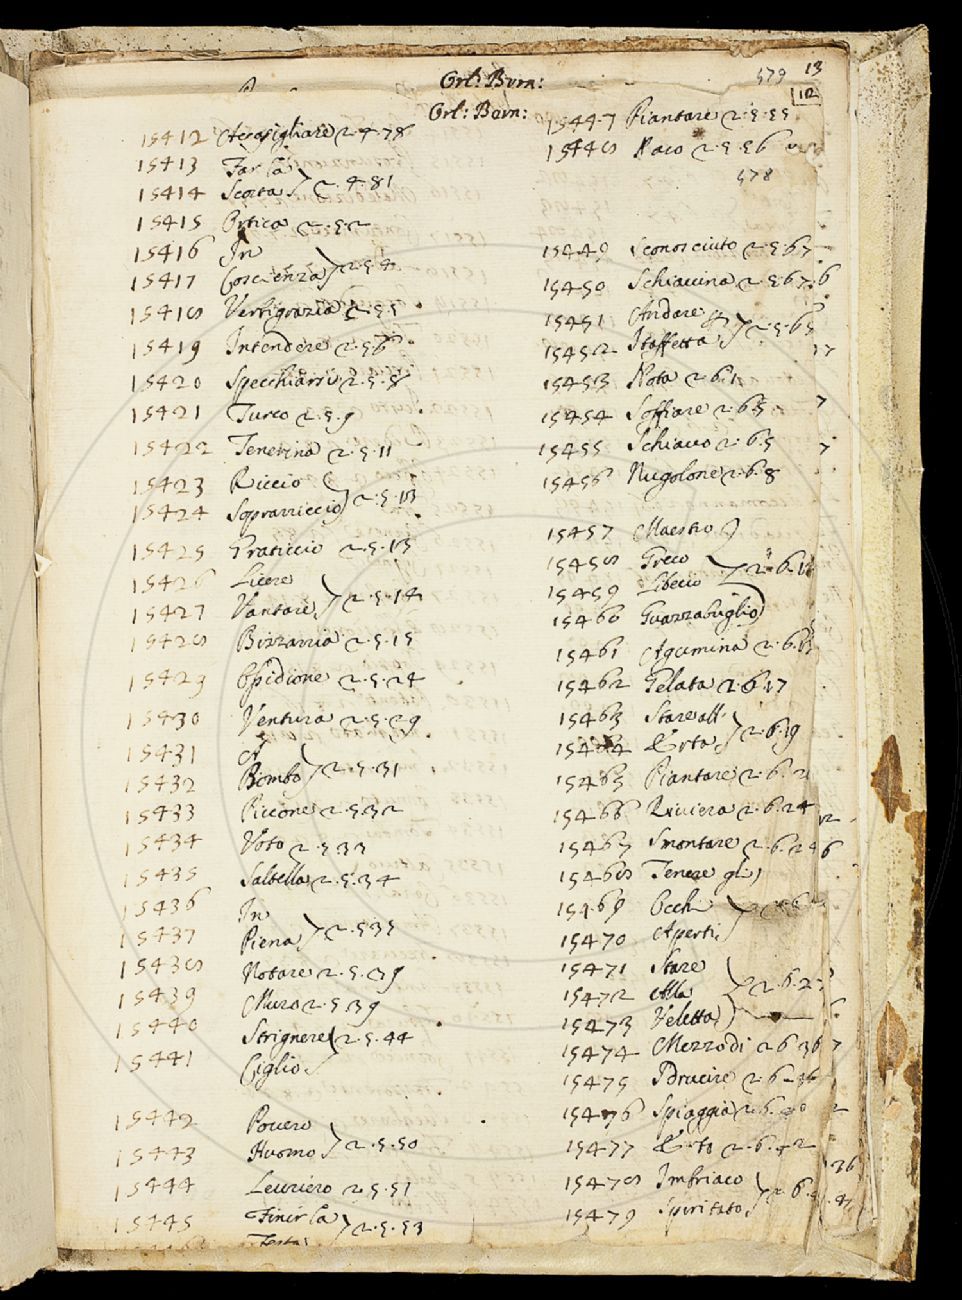 Orl: Bern:
579 13
Orl: Bern:
12
15412 Accasigliare 2.4.78
15413 Far la
15414 Scorta } 2.4.81
15415 Ortica 2.5.2
15416 In
15417 Coscienza } 2.5.4
15418 Vertigrazia 2.5.5
15419 Intendere 2.5.6
15420 Specchiarsi 2.5.8
15421 Turco 2.5.9
15422 Tenerina 2.5.11
15423 Riccio
15424 Sopravriccio } 2.5.13
15425 Graticcio 2.5.13
15426 Licere
15427 Vantare } 2.5.14
15428 Bizzarria 2.5.15
15429 Spidione 2.5.24
15430 Ventura 2.5.29
15431 A
15432 Bimbo } 2.5.31
15433 Piccone 2.5.32
15434 Voto 2.5.33
15435 Saltella 2.5.34
15436 In
15437 Piena } 2.5.35
15438 Notare 2.5.39
15439 Muro 2.5.39
15440 Strignere } 2.5.44
15441 Ciglio
15442 Povero
15443 Huomo } 2.5.50
15444 Levriero 2.5.51
15445 Finir la } 2.5.53
15447 Piantare 2.5.55
15448 Naco 2.5.56
578
15449 Sconosciuto 2.5.67
15450 Schiavina 2.5.67
15451 Andare
15452 Staffetta } 2.5.65
15453 Nota 2.6.1
15454 Soffiare 2.6.5
15455 Schiavo 2.6.5
15456 Nugolone 2.6.8
15457 Maestro
15458 Greco
15459 Libecio } 2.6.12
15460 Guazzabuglio
15461 Agumina 2.6.13
15462 Gelata 2.6.17
15463 Stare all
15464 Erta } 2.6.19
15465 Piantare 2.6.2
15466 Riviera 2.6.24
15467 Smontare 2.6.24
15468 Tenere gli
15469 Occhi
15470 Aperti
15471 Stare
15472 Alla } 2.6.2
15473 Veletta
15474 Mezzodi 2.6.36
15475 Sdrucire 2.6.36
15476 Spiaggia 2.6.40
15477 Erto 2.6.42
15478 Imbriaco
15479 Spiritato